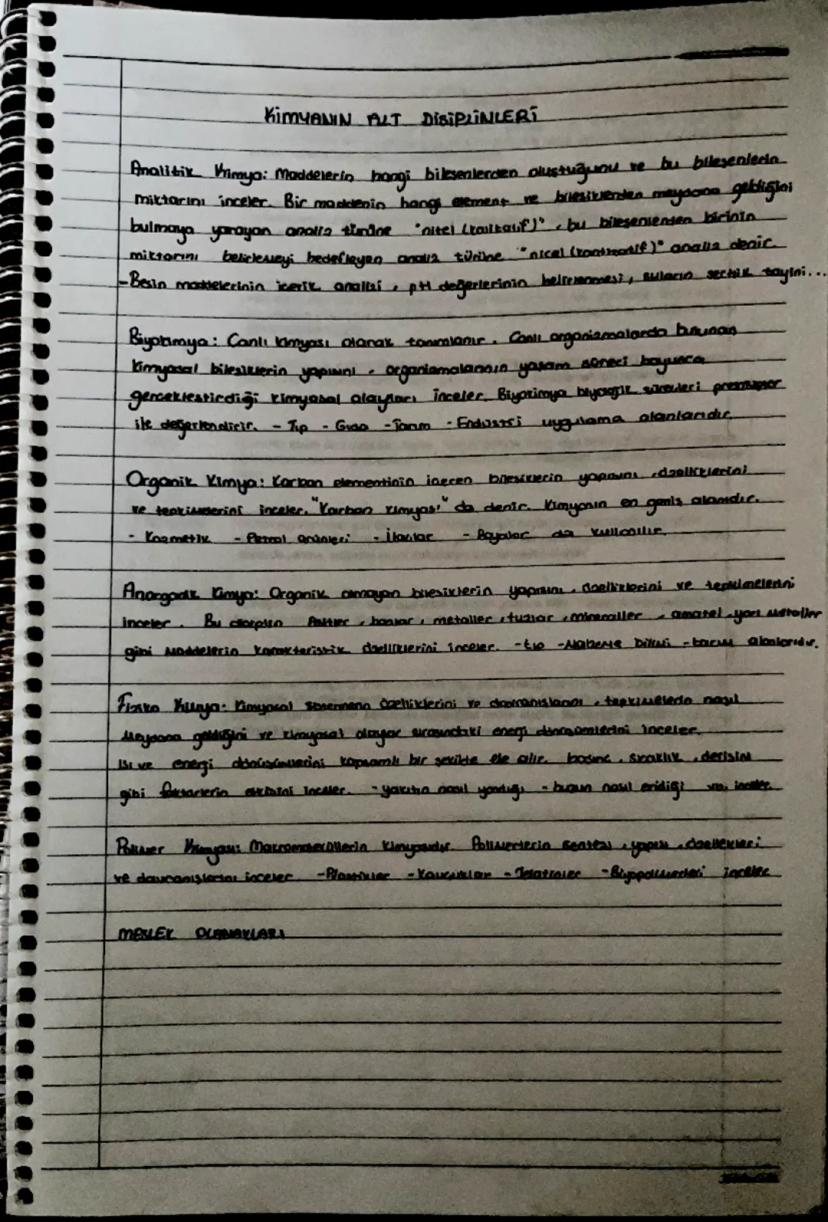 KİMYANIN ALT DİSİPLİNLERİ
Analitik Kimya: Maddelerin hangi bileşenlerden oluştuğunu ve bu bileşenlerin
miktarını inceler. Bir maddenin hangi element ve bileşiklerden meydana geldiğini
bulmaya yarayan analiz türüne "nitel (kalitatif)", bu bileşenlerden birinin
miktarını belirlemeyi hedefleyen analiz türüne "nicel (kantitatif)" analiz denir.
-Besin maddelerinin içerik analizi, pH değerlerinin belirlenmesi, suların sertlik tayini...
Biyokimya: Canlı kimyası olarak tanımlanır. Canlı organizmalarda bulunan
kimyasal bileşiklerin yapısını, organizmalarının yaşam süreci boyunca
gerçekleştirdiği kimyasal olayları inceler. Biyokimya biyolojik süreçleri
ile değerlendirir. - Tıp - Gıda - Tarım - Endüstri uygulama alanlarıdır.
Organik Kimya: Karbon elementinin içeren bileşiklerin yapısını, özelliklerini
ve tepkimelerini inceler. "Karbon kimyası" da denir. Kimyanın en geniş alanıdır.
- Kozmetik - Petrol ürünleri - İlaçlar - Boyalar da kullanılır.
Anorganik Kimya: Organik olmayan bileşiklerin yapısını, özelliklerini ve tepkimelerini
inceler. Bu disiplin Asitler, bazlar, metaller, tuzlar, mineraller, ametal, yarı metaller
gibi maddelerin karakteristik özelliklerini inceler. -tıp -Malzeme bilimi -tarım alanlarıdır.
Fiziko Kimya: Kimyasal sistemlerin özelliklerini ve davranışlarını, tepkimelerin nasıl
meydana geldiğini ve kimyasal olaylar sırasındaki enerji dönüşümlerini inceler.
Isı ve enerji dönüşümlerini kapsamlı bir şekilde ele alır. basınç, sıcaklık, derişim
gibi faktörlerin etkisini inceler. - yakıtın nasıl yandığı - buzun nasıl eridiği inceler
Polimer Kimyası: Makromoleküllerin kimyasıdır. Polimerlerin sentezi, yapısı, özellikleri
ve davranışlarını inceler. -Plastikler - Kauçuklar - -Biyopolimerleri inceler
MESLEK OLANAKLARI